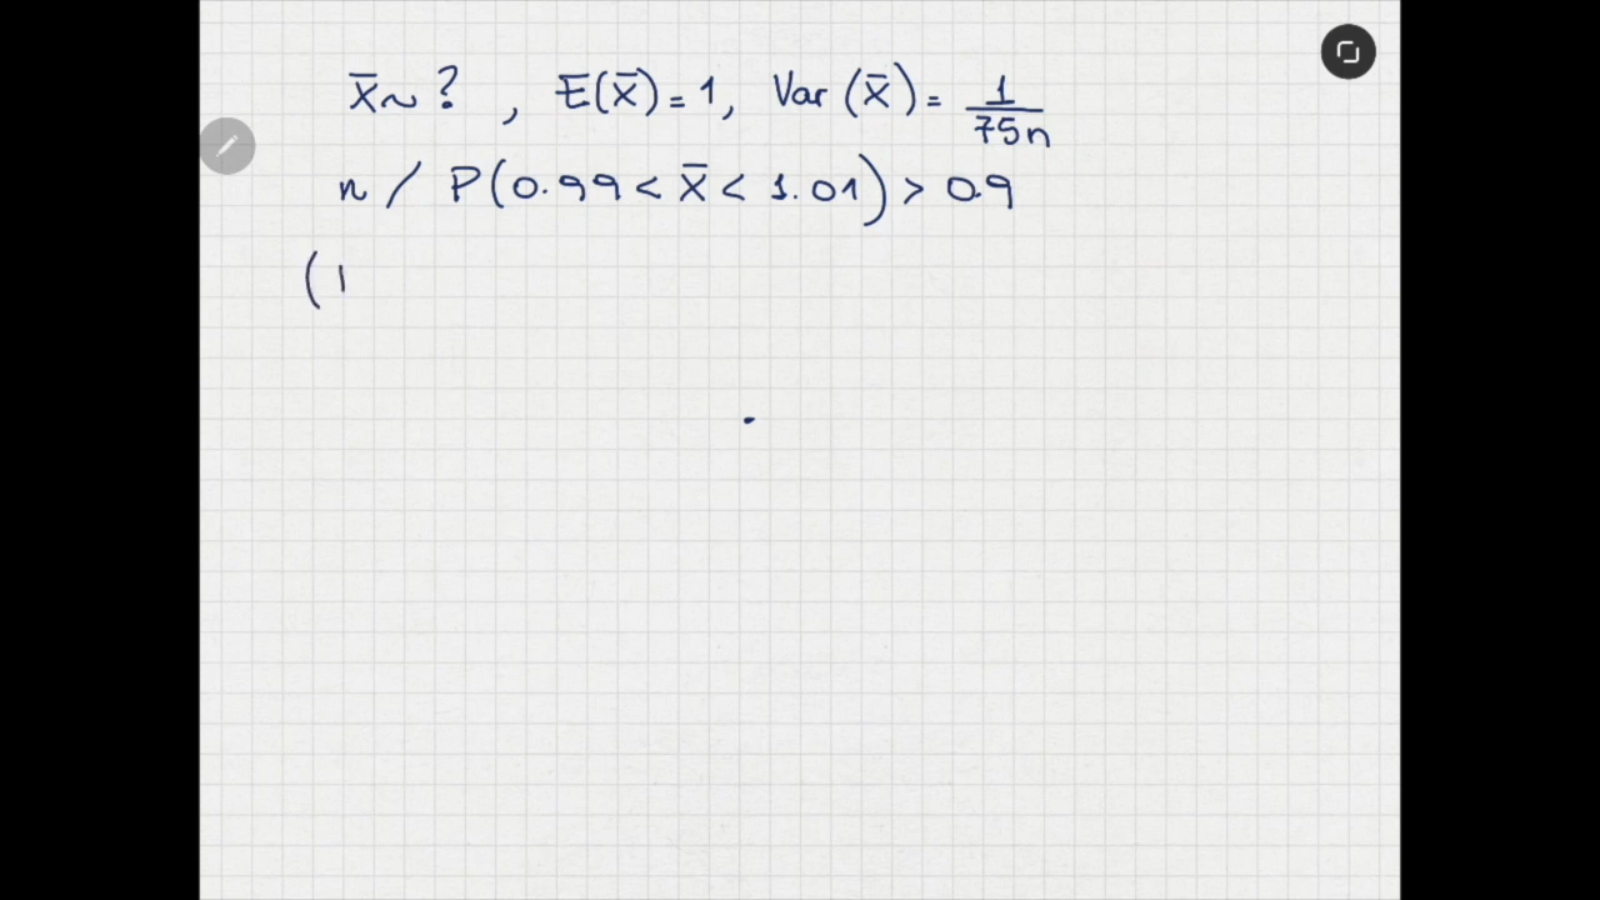 X̄ ~ ? , E(X̄) = 1, Var (X̄) = 1/75n
n / P(0.99 < X̄ < 1.01) > 0.9
( I